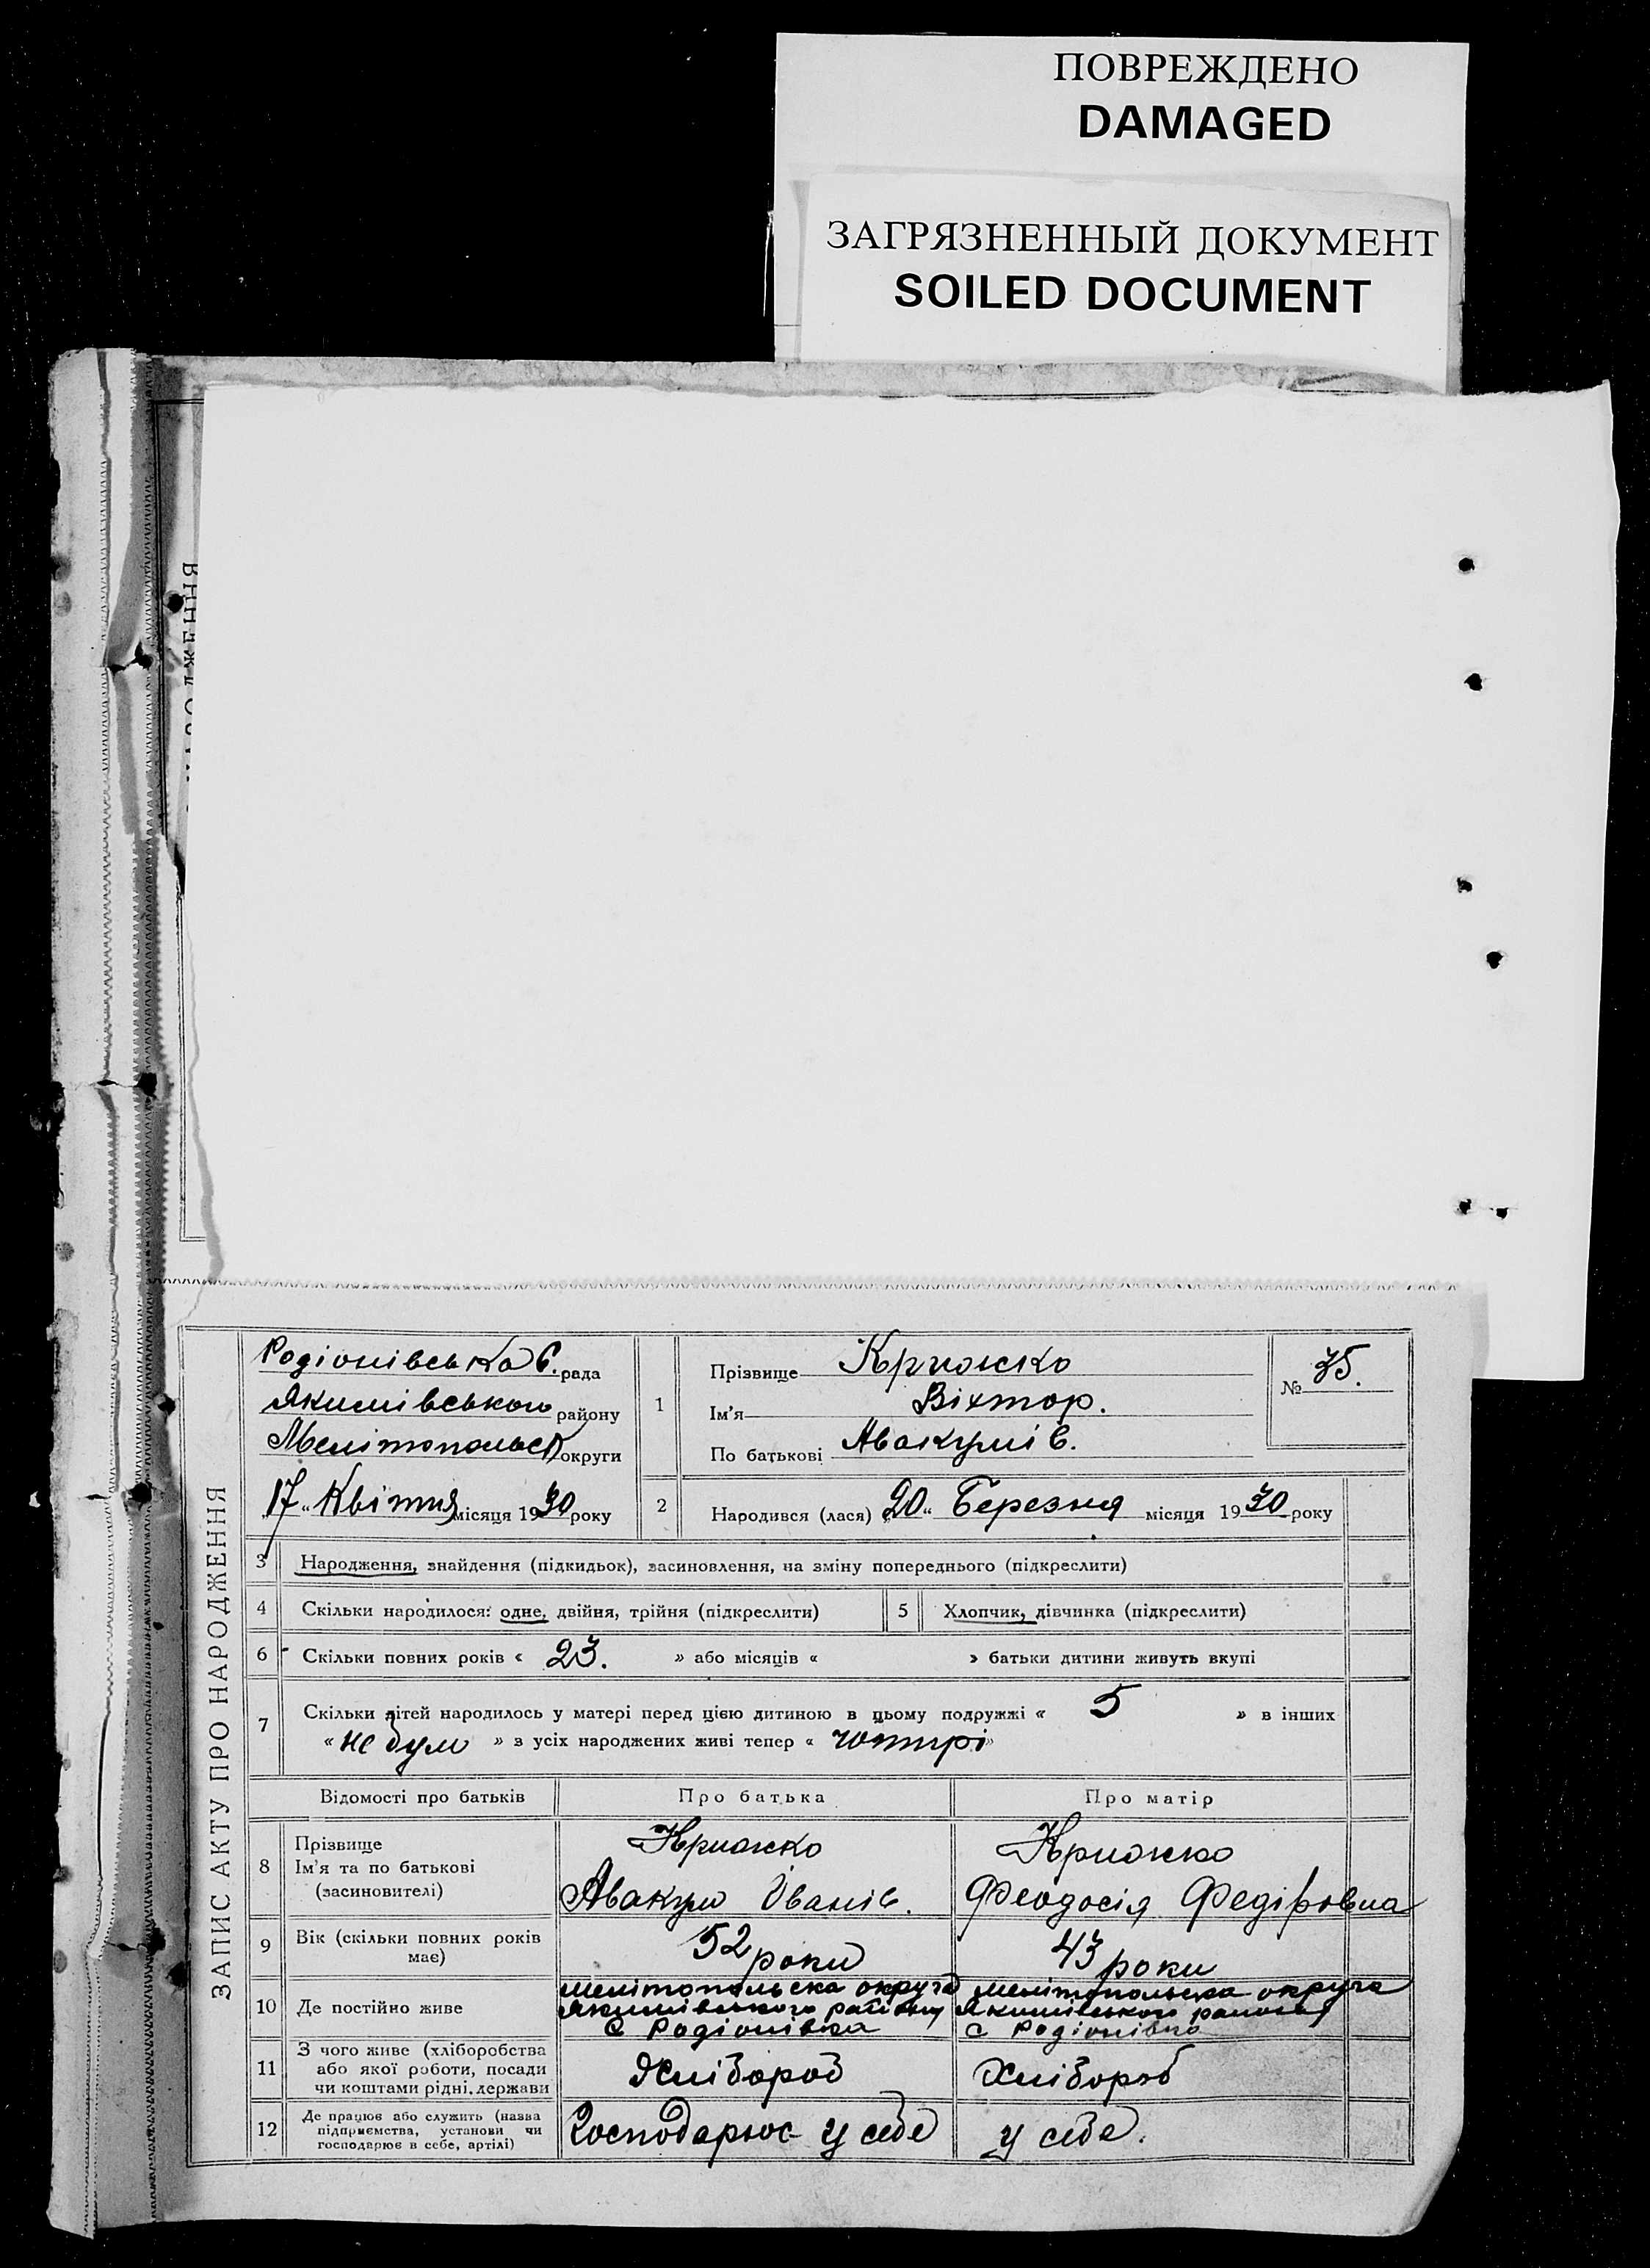 ПОВРЕЖДЕНО
DAMAGED
ЗАГРЯЗНЕННЫЙ ДОКУМЕНТ
SOILED DOCUMENT
ЗАПИС АКТУ ПРО НАРОДЖЕННЯ
Родіонівська С. рада
Якимівського району
Мелітопольськ округи
„17“ Квітня місяця 1930 року
1
Прізвище Крижко
Ім'я Віхтор.
По батькові Авакумів.
№ 35.
2
Народився (лася) „20“ Березня місяця 1930 року
3 Народження, знайдення (підкидьок), засиновлення, на зміну попереднього (підкреслити)
4 Скільки народилося: одне, двійня, трійня (підкреслити) 5 Хлопчик, дівчинка (підкреслити)
6 Скільки повних років « 23. » або місяців « » батьки дитини живуть вкупі
7 Скільки дітей народилось у матері перед цією дитиною в цьому подружжі « 5 » в інших
« не було » з усіх народжених живі тепер « чотирі »
Відомості про батьків Про батька Про матір
8 Прізвище
Ім'я та по батькові
(засиновителі)
Крижко
Авакум Іванів.
Крижко
Феодосія Федіровна
9 Вік (скільки повних років
має)
52 роки
43 роки
10 Де постійно живе
Мелітопольска округа
Якимівського району
С Родіонівка
Мелітопольска округа
Якимівського району
С Родіонівка
11 З чого живе (хліборобства
або якої роботи, посади
чи коштами рідні, держави
Хлібороб
Хлібороб
12 Де працює або служить (назва
підприємства, установи чи
господарює в себе, артілі)
Господарює у себе
у себе.